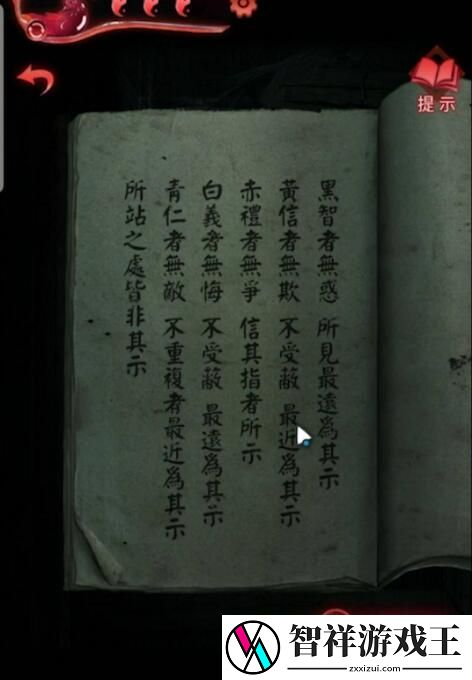 提示
黑智者無惑 所見最遠為其示
黃信者無欺 不受蔽 最近為其示
赤禮者無爭 信其指者所示
白義者無悔 不受蔽 最遠為其示
青仁者無敵 不重複者最近為其示
所站之處皆非其示
智祥游戏王
zxxizui.com